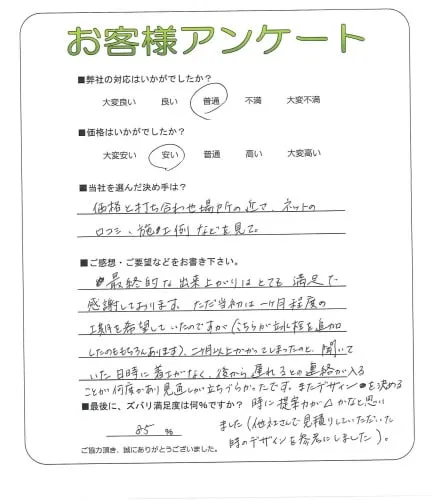 お客様アンケート
■弊社の対応はいかがでしたか?
大変良い 良い 普通 不満 大変不満
■価格はいかがでしたか?
大変安い 安い 普通 高い 大変高い
■当社を選んだ決め手は?
価格と打ち合わせ場所の近さ、ネットの
口コミ、施工例などを見て。
■ご感想・ご要望などをお書き下さい。
最終的な出来上がりはとても満足で
感謝しております。ただ当初は一ヶ月程度の
工期を希望していたのですが(こちらが立水栓を追加
したのももちろんあります)、二ヶ月以上かかってしまったのと、聞いて
いた日時に着工がなく、後から遅れるとの連絡が入る
ことが何度かあり見通しが立ちづらかったです。またデザインを決める
時に提案力が△かなと思い
ました(他社さんで見積りしていただいた
時のデザインを参考にしました)。
■最後に、ズバリ満足度は何%ですか?
85 %
ご協力頂き、誠にありがとうございました。